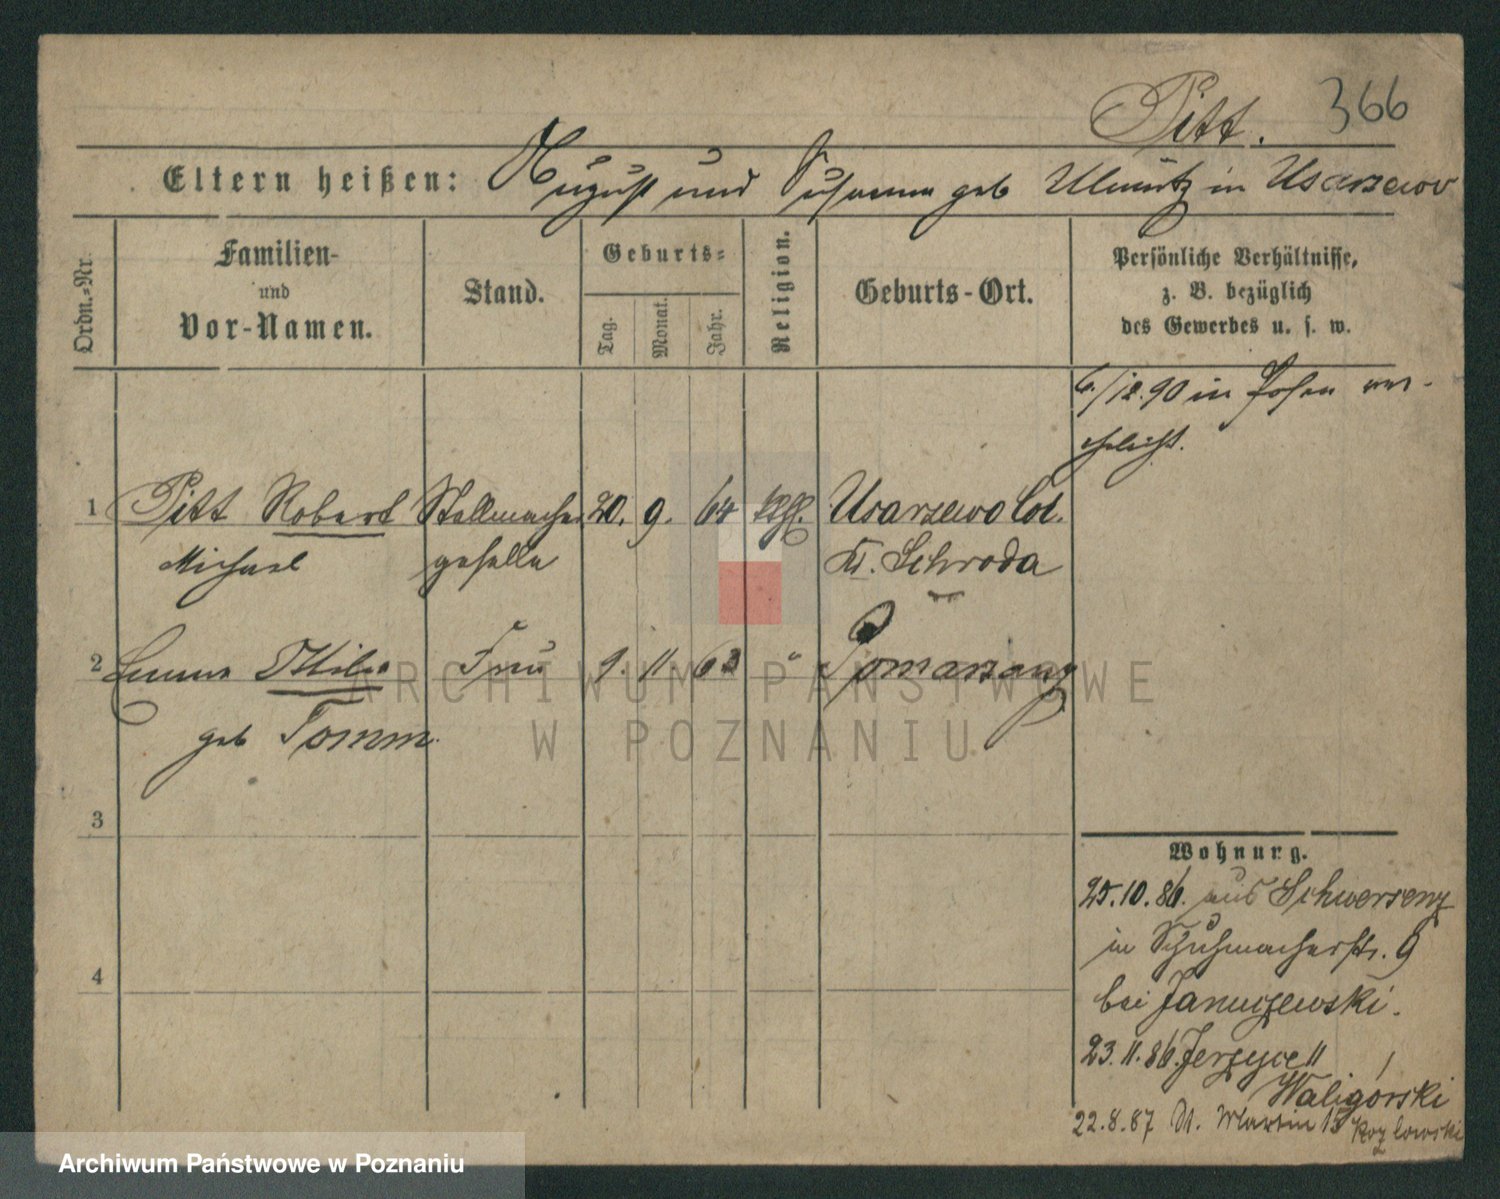 Pitt. 366
Eltern heißen: August und Susanna geb Ulmütz in Usarzewo
Ordn.-Nr.
Familien-
und
Vor-Namen.
Stand.
Geburts-
Tag.
Monat.
Jahr.
Religion.
Geburts-Ort.
Persönliche Verhältnisse,
z. B. bezüglich
des Gewerbes u. s. w.
6./12.90 in Posen ver-
ehelicht.
1 Pitt Robert Stellmacher 20. 9. 64 Usarzewo Col.
Michael geselle Kr. Schroda
2 Emma Ottilie Frau 9. 11 63 " Pomarzany
geb Tomm.
3
4
Wohnung.
25.10.86. aus Schwersenz
in Schuhmacherstr. 9
bei Januszewski.
23.11.86. Jerzyce 11
Waligórski
22.8.87 St. Martin 15 Kozlowski
ARCHIWUM PAŃSTWOWE
W POZNANIU
Archiwum Państwowe w Poznaniu